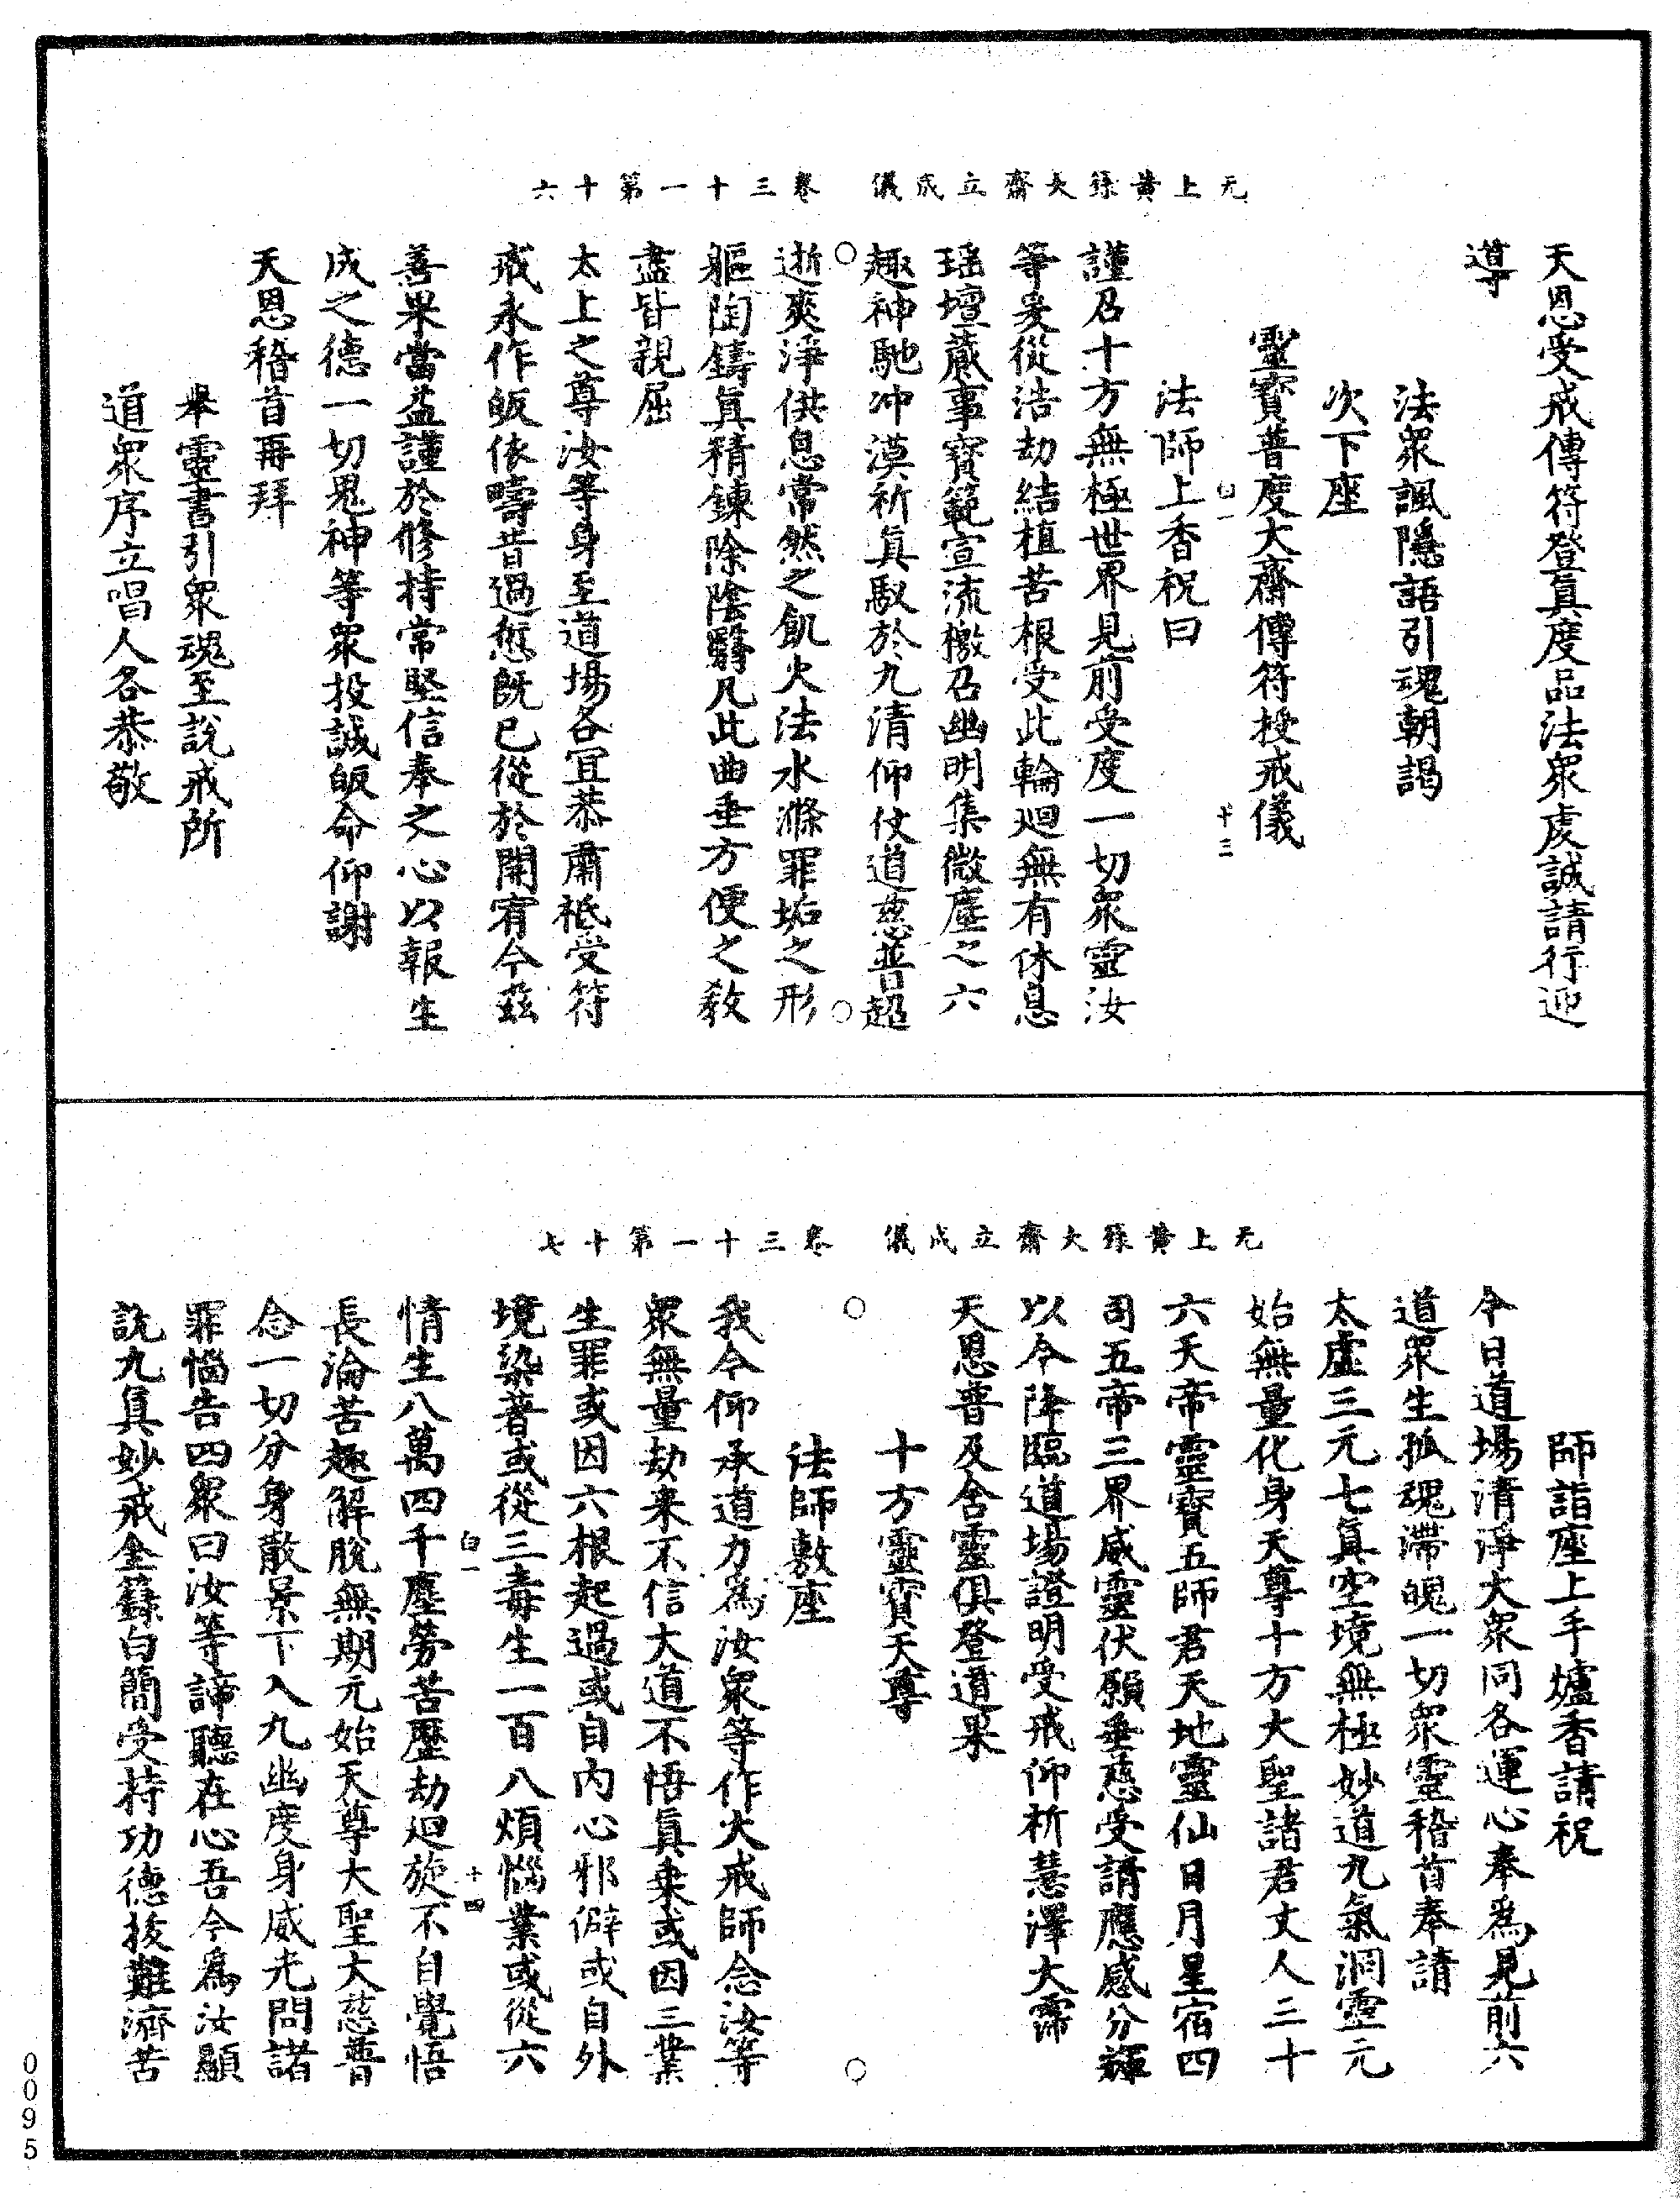 无上黄籙大齋立成儀　卷三十一第十六
天恩受戒傳符登真度品法衆虔誠請行迎
導
法衆諷隱語引魂朝謁
次下座
靈寶普度大齋傳符授戒儀
白一　十三
法師上香祝曰
謹召十方無極世界見前受度一切衆靈汝
等爰從浩劫結植苦根受此輪廻無有休息
瑶壇蕆事寶範宣流檄召幽明集微塵之六
趣神馳冲漠祈真馭於九清仰仗道慈普超
逝爽淨供息常然之飢火法水滌罪垢之形
軀陶鑄真精鍊除陰翳凡此曲垂方便之教
盡皆親屈
太上之尊汝等身至道場各宜恭肅祗受符
戒永作皈依疇昔過愆既已從於開宥今兹
善果當益謹於修持常堅信奉之心以報生
成之德一切鬼神等衆投誠皈命仰謝
天恩稽首再拜
舉靈書引衆魂至說戒所
道衆序立唱人各恭敬
无上黄籙大齋立成儀　卷三十一第十七
師詣座上手爐香請祝
今日道場清淨大衆同各運心奉爲見前六
道衆生孤魂滯魄一切衆靈稽首奉請
太虛三元七真空境無極妙道九氣洞靈元
始無量化身天尊十方大聖諸君丈人三十
六天帝靈寶五師君天地靈仙日月星宿四
司五帝三界威靈伏願垂慈受請應感分輝
以今降臨道場證明受戒仰祈慧澤大霈
天恩普及含靈俱登道果
十方靈寶天尊
法師敷座
我今仰承道力為汝衆等作大戒師念汝等
衆無量劫来不信大道不悟真乗或因三業
生罪或因六根起過或自内心邪僻或自外
境染著或從三毒生一百八煩惱業或從六
情生八萬四千塵勞苦歷劫廻旋不自覺悟
白一　十四
長淪苦趣解脫無期元始天尊大聖大慈普
念一切分身散景下入九幽度身威光問諸
罪惱告四衆曰汝等諦聽在心吾今爲汝顯
說九真妙戒金籙白簡受持功德拔難濟苦
0095